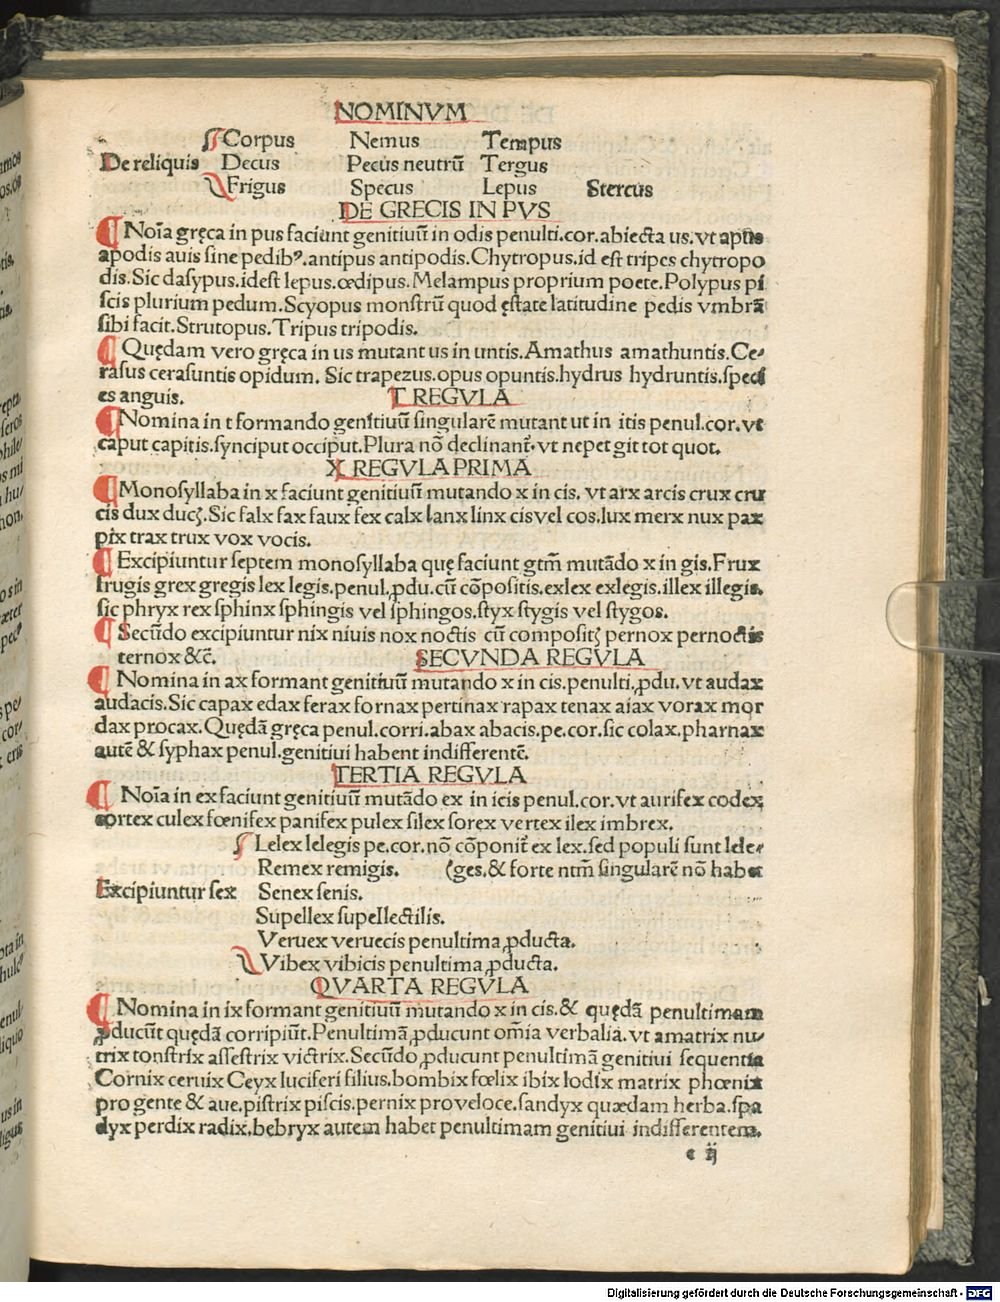 NOMINVM
Corpus Nemus Tempus
De reliquis Decus Pecus neutrũ Tergus
Frigus Specus Lepus Stercus
DE GRECIS IN PVS
¶ Noĩa gręca in pus faciunt genitiuũ in odis penulti.cor.abiecta us.vt apus
apodis auis sine pedibꝰ.antipus antipodis.Chytropus.id est tripes chytropo
dis.Sic dasypus.idest lepus.œdipus.Melampus proprium poete.Polypus pi
scis plurium pedum.Scyopus monstrũ quod ęstate latitudine pedis vmbrã
sibi facit.Strutopus.Tripus tripodis.
¶ Quędam vero gręca in us mutant us in untis.Amathus amathuntis.Ce-
rasus cerasuntis opidum. Sic trapezus.opus opuntis.hydrus hydruntis.speci
es anguis. T REGVLA
¶ Nomina in t formando genitiuum singularẽ mutant ut in itis penul.cor.vt
caput capitis.synciput occiput.Plura nõ declinant̃.vt nepet git tot quot.
X REGVLA PRIMA
¶ Monosyllaba in x faciunt genitiuũ mutando x in cis. vt arx arcis crux cru
cis dux ducꝭ.Sic falx fax faux fex calx lanx linx cis vel cos.lux merx nux pax
pix trax trux vox vocis.
¶ Excipiuntur septem monosyllaba quę faciunt gtm̃ mutãdo x in gis.Frux
frugis grex gregis lex legis.penul.ꝓdu.cũ cõpositis.exlex exlegis.illex illegis.
sic phryx rex sphinx sphingis vel sphingos.styx stygis vel stygos.
¶ Secũdo excipiuntur nix niuis nox noctis cũ compositꝭ pernox pernoctis
ternox &c̃. SECVNDA REGVLA
¶ Nomina in ax formant genitiuũ mutando x in cis.penulti.ꝓdu.vt audax
audacis.Sic capax edax ferax fornax pertinax rapax tenax aiax vorax mor
dax procax.Quędã gręca penul.corri.abax abacis.pe.cor.sic colax.pharnax
autẽ & syphax penul.genitiui habent indifferentẽ.
TERTIA REGVLA
¶ Noĩa in ex faciunt genitiuũ mutãdo ex in icis penul.cor.vt aurifex codex
cortex culex fœnifex panifex pulex silex sorex vertex ilex imbrex.
Lelex lelegis pe.cor.nõ cõponit̃ ex lex.sed populi sunt lele-
Remex remigis. (ges.& forte ntm̃ singularẽ nõ habet
Excipiuntur sex Senex senis.
Supellex supellectilis.
Veruex veruecis penultima ꝓducta.
Vibex vibicis penultima ꝓducta.
QVARTA REGVLA
¶ Nomina in ix formant genitiuũ mutando x in cis.& quędã penultimam
ꝓducũt quędã corripiũt.Penultimã ꝓducunt om̃ia verbalia.vt amatrix nu-
trix tonstrix assestrix victrix.Secũdo ꝓducunt penultimã genitiui sequentia
Cornix ceruix Ceyx luciferi filius.bombix fœlix ibix lodix matrix phœnix
pro gente & aue.pistrix piscis.pernix pro veloce.sandyx quædam herba.spa
dyx perdix radix.bebryx autem habet penultimam genitiui indifferentem.
c ij
Digitalisierung gefördert durch die Deutsche Forschungsgemeinschaft - DFG